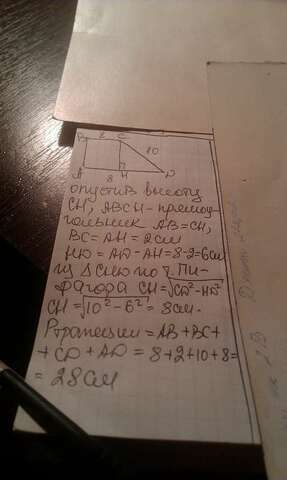 B 2 C
10
A 8 H D
опустив высоту
CH, ABCH - прямоу-
гольник AB = CH,
BC = AH = 2см
HD = AD - AH = 8-2=6см
из ΔCHD по т. Пи-
фагора CH = √CD²-HD²
CH = √10² - 6² = 8см.
Pтрапеции = AB + BC +
+ CD + AD = 8+2+10+8=
= 28см